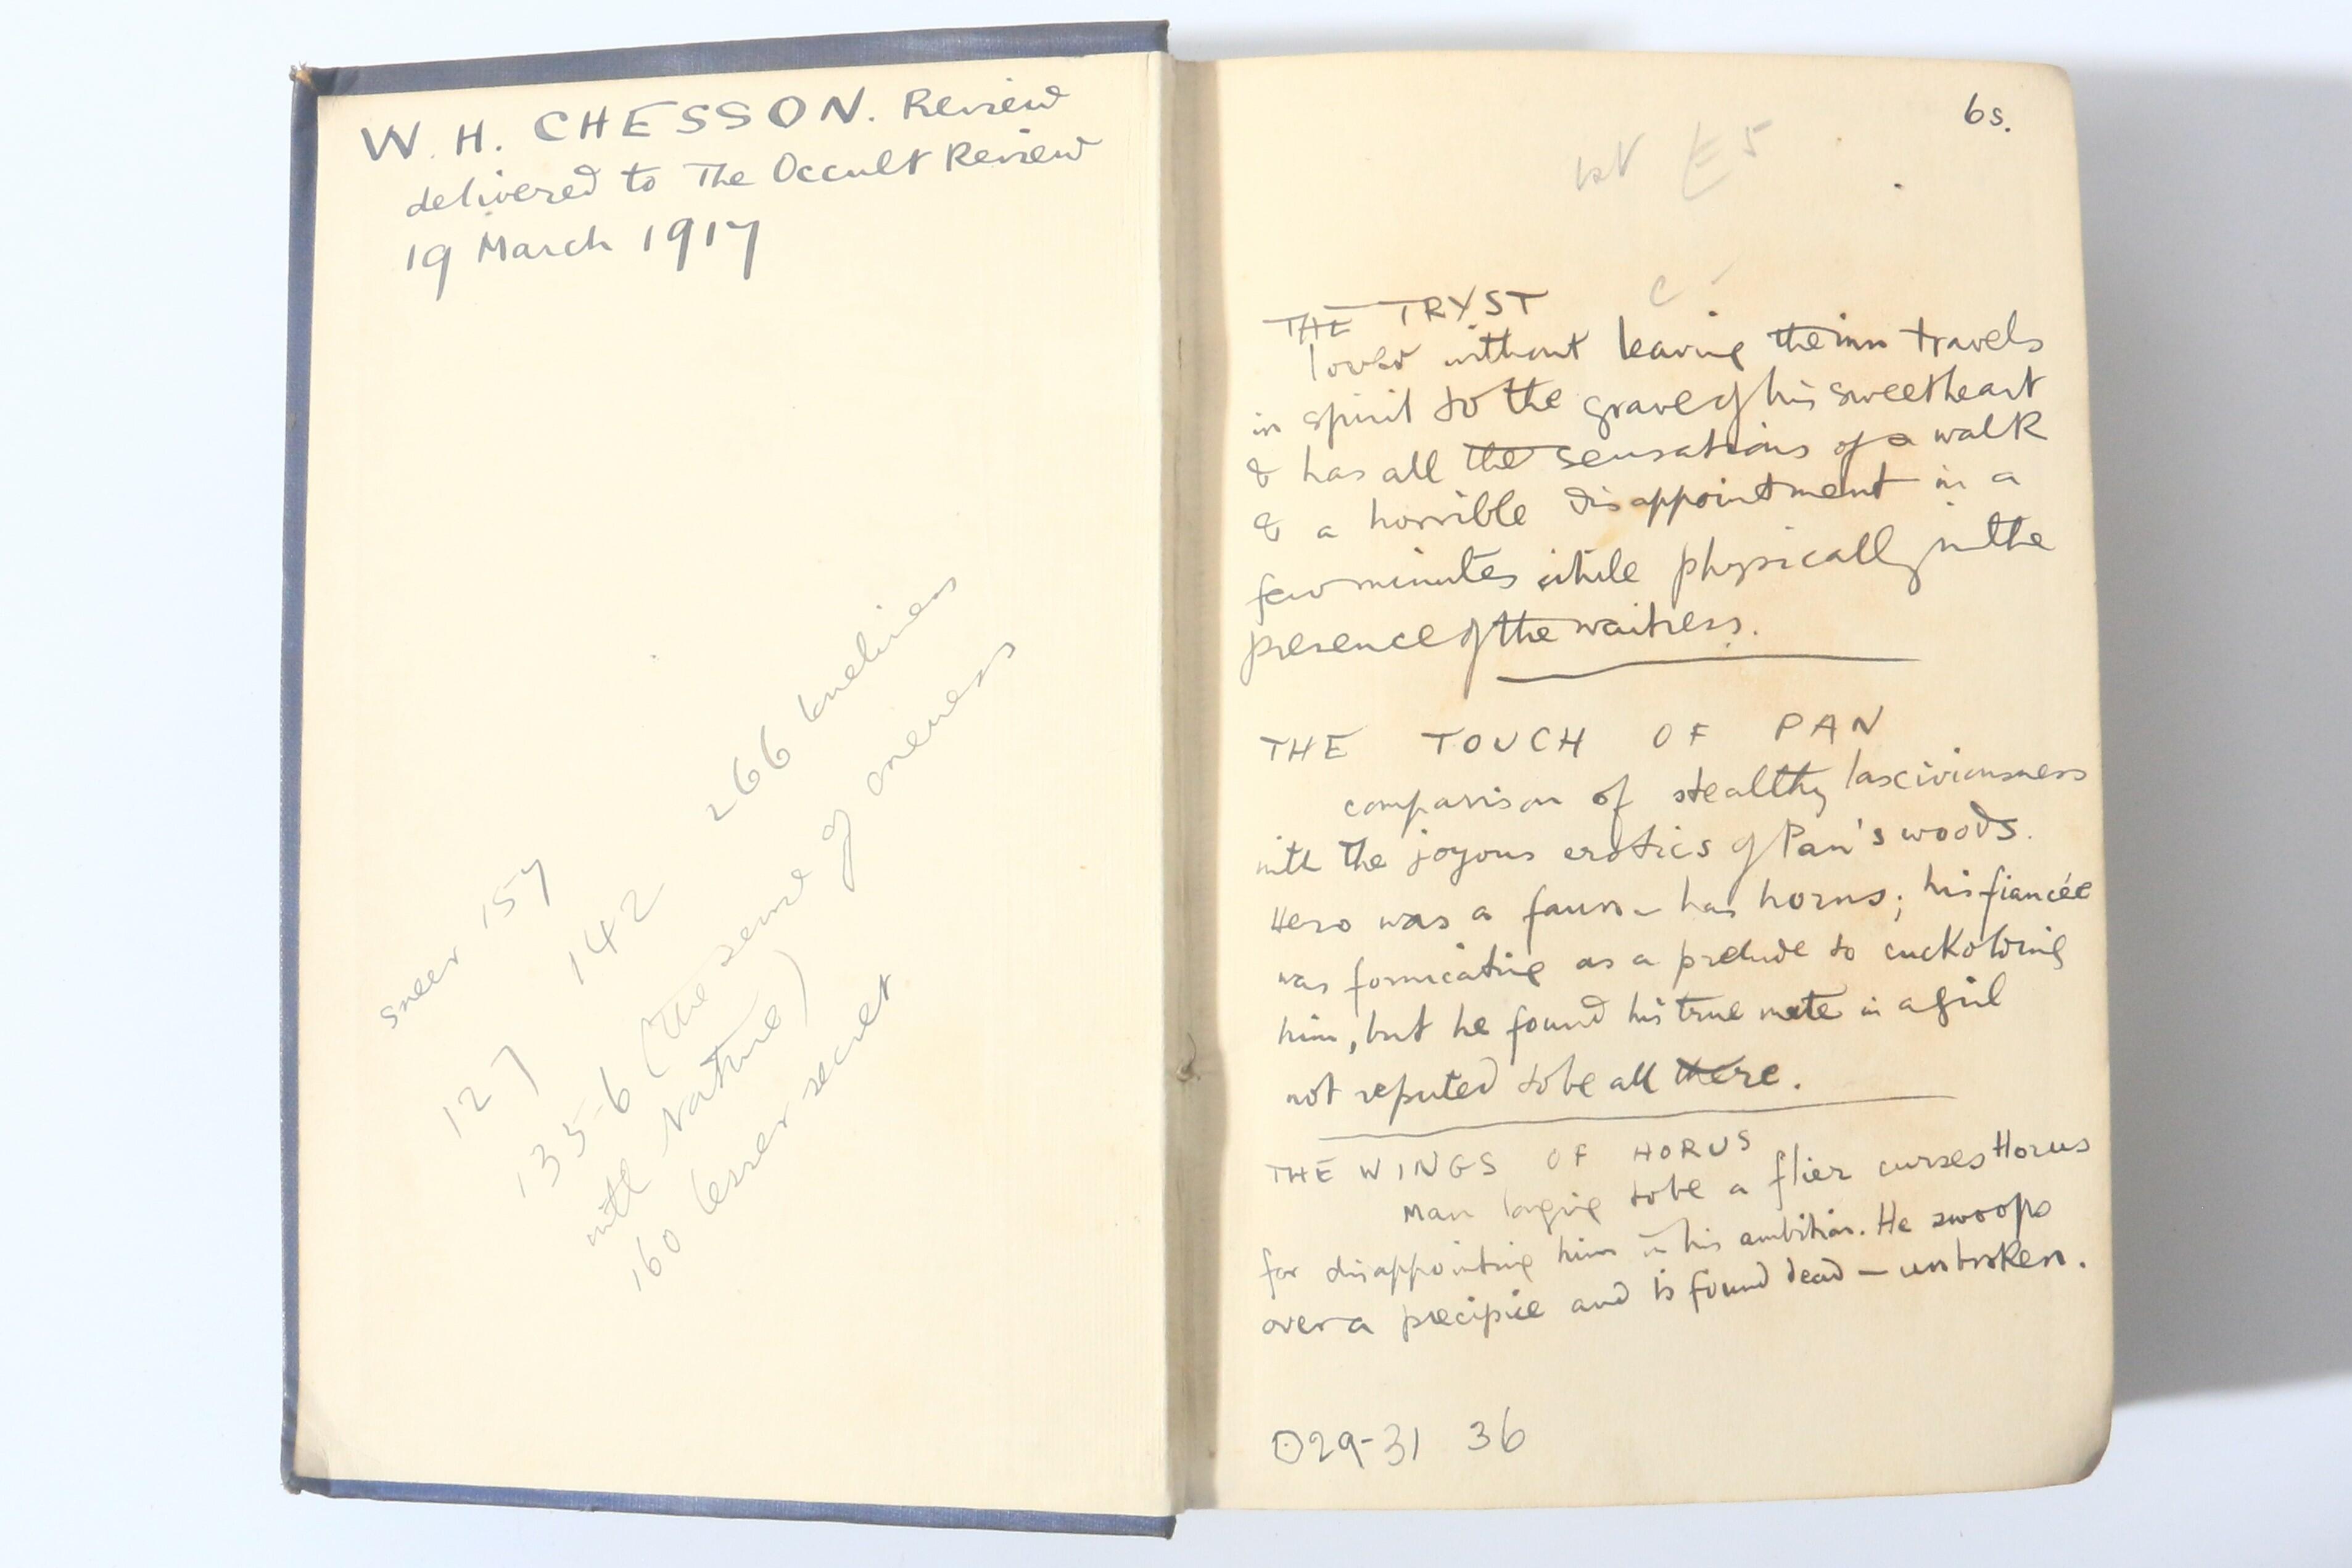 W. H. CHESSON. Review
delivered to The Occult Review
19 March 1917
sneer 157
127
142
266 loneliness
135-6 (The sense of oneness
with Nature)
160 lesser secret
6s.
1st £5
THE TRYST
lover without leaving the inn travels
in spirit to the grave of his sweetheart
& has all the sensations of a walk
& a horrible disappointment in a
few minutes while physically in the
presence of the waitress.
THE TOUCH OF PAN
comparison of stealthy lasciviousness
with the joyous erotics of Pan's woods.
Hero was a faun – has horns; his fiancée
was fornicating as a prelude to cuckolding
him, but he found his true mate in a girl
not reputed to be all there.
THE WINGS OF HORUS
Man longing to be a flier curses Horus
for disappointing him in his ambition. He swoops
over a precipice and is found dead – unbroken.
29-31 36